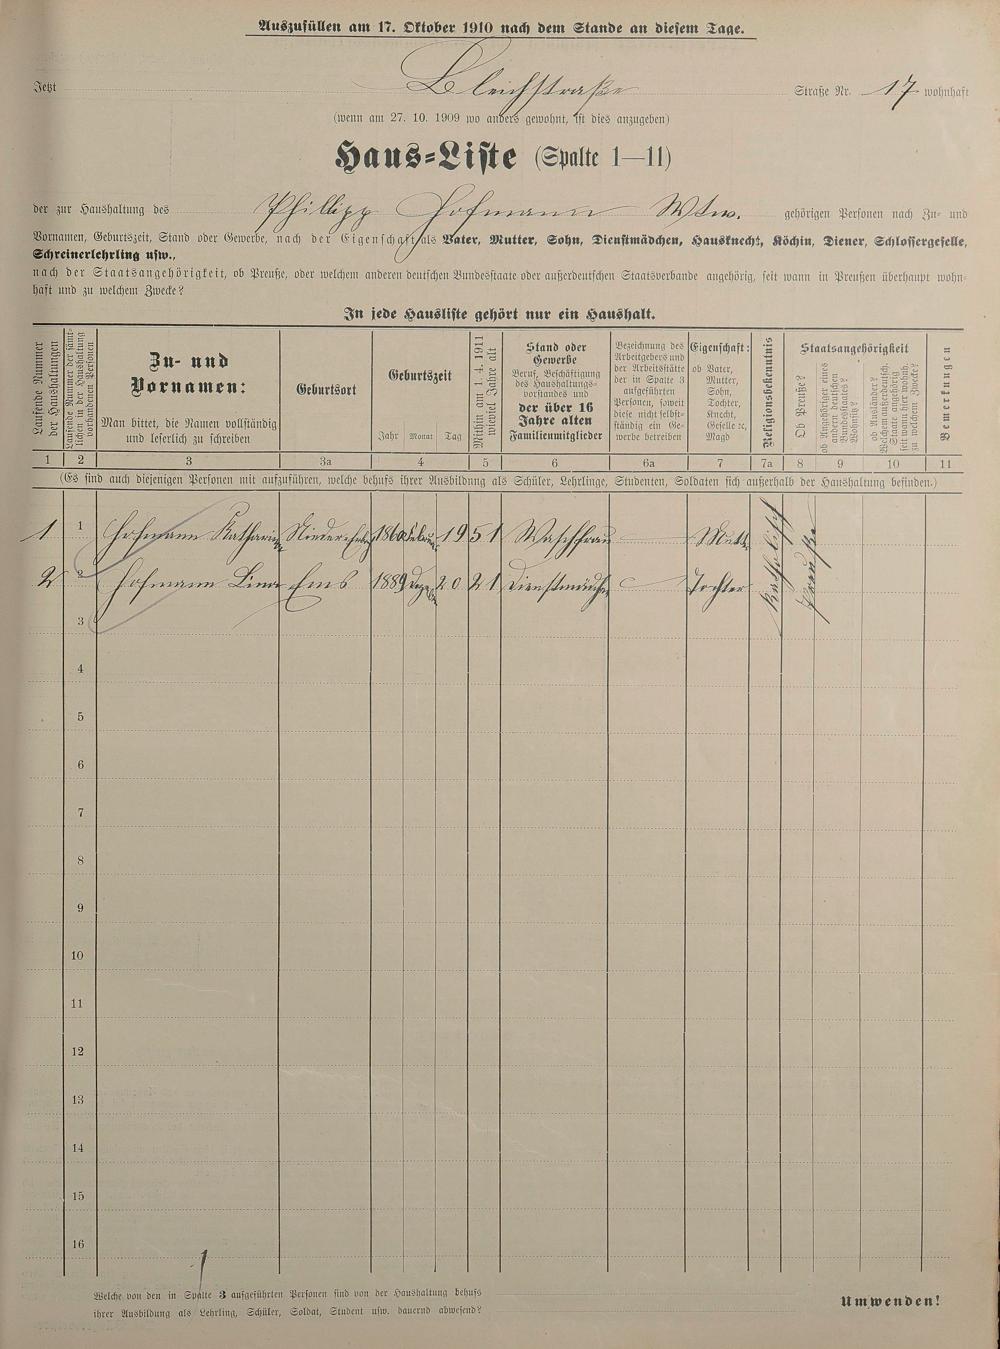 Auszufüllen am 17. Oktober 1910 nach dem Stande an diesem Tage.
Jetzt Bleichstraße Straße Nr. 17 wohnhaft
(wenn am 27. 10. 1909 wo anders gewohnt, ist dies anzugeben)
Haus-Liste (Spalte 1—11)
der zur Haushaltung des Phillipp Hofmann Wtw. gehörigen Personen nach Zu- und
Vornamen, Geburtszeit, Stand oder Gewerbe, nach der Eigenschaft als Vater, Mutter, Sohn, Dienstmädchen, Hausknecht, Köchin, Diener, Schlossergeselle,
Schreinerlehrling usw.,
nach der Staatsangehörigkeit, ob Preuße, oder welchem anderen deutschen Bundesstaate oder außerdeutschen Staatsverbande angehörig, seit wann in Preußen überhaupt wohn-
haft und zu welchem Zwecke?
In jede Hausliste gehört nur ein Haushalt.
Laufende Nummer
der Haushaltungen
Laufende Nummer der sämt-
lichen in der Haushaltung
vorhandenen Personen
Zu- und
Vornamen:
Man bittet, die Namen vollständig
und leserlich zu schreiben
Geburtsort
Geburtszeit
Jahr Monat Tag
Mithin am 1. 4. 1911
wieviel Jahre alt
Stand oder
Gewerbe
Beruf, Beschäftigung
des Haushaltungs-
vorstandes und
der über 16
Jahre alten
Familienmitglieder
Bezeichnung des
Arbeitgebers und
der Arbeitsstätte
der in Spalte 3
aufgeführten
Personen, soweit
diese nicht selbst-
ständig ein Ge-
werbe betreiben
Eigenschaft:
ob Vater,
Mutter,
Sohn,
Tochter,
Knecht,
Geselle ꝛc,
Magd
Religionsbekenntnis
Staatsangehörigkeit
Ob Preuße?
ob Angehöriger eines
andern deutschen
Bundesstaates?
Wohnsitz?
ob Ausländer?
Welchem außerdeutsch.
Staate angehörig
seit wann hier wohnh.
zu welchem Zwecke?
Bemerkungen
1 2 3 3a 4 5 6 6a 7 7a 8 9 10 11
(Es sind auch diejenigen Personen mit aufzuführen, welche behufs ihrer Ausbildung als Schüler, Lehrlinge, Studenten, Soldaten sich außerhalb der Haushaltung befinden.)
1 1 Hofmann Katharina 1860 19 51 Waschfrau Mutter
2 2 Hofmann Lina Ems 1889 20 21 Dienstmädchen Tochter
Katholisch
Preuße
3
4
5
6
7
8
9
10
11
12
13
14
15
16
Welche von den in Spalte 3 aufgeführten Personen sind von der Haushaltung behufs
ihrer Ausbildung als Lehrling, Schüler, Soldat, Student usw. dauernd abwesend?
Umwenden!